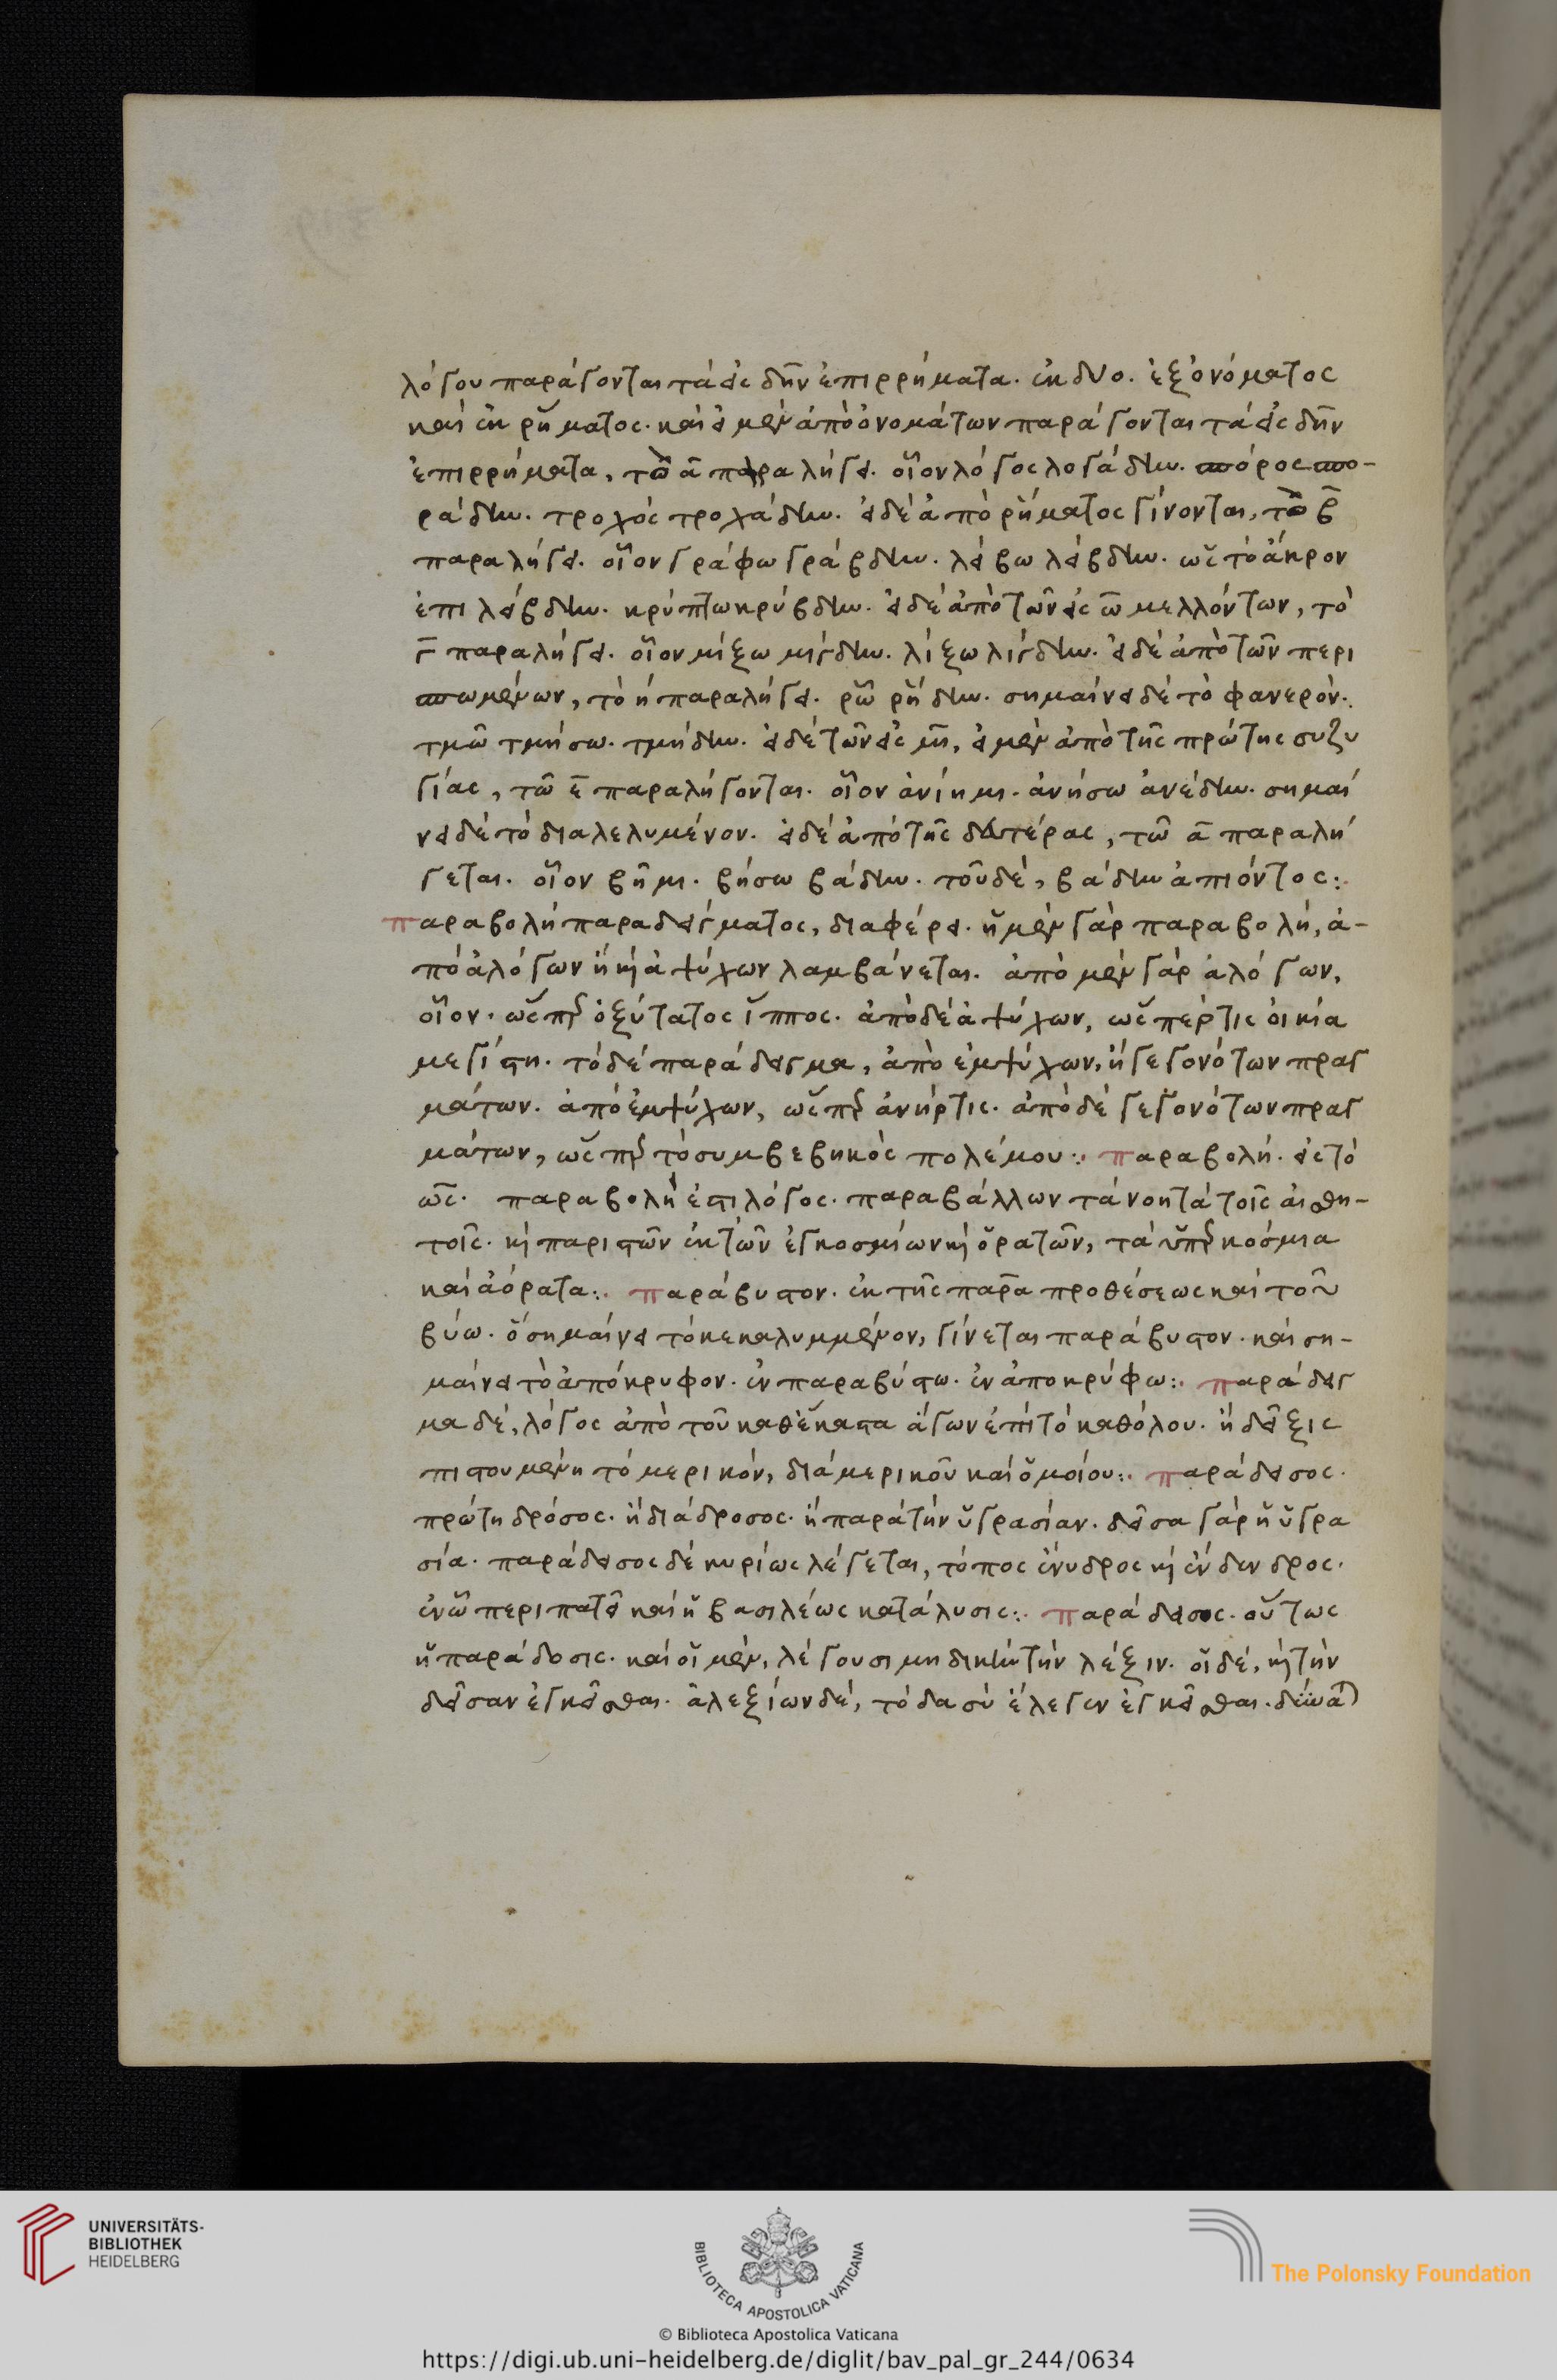 λόγου παράγονται τὰ εἰς δην ἐπιρρήματα. ἐκ δύο. ἐξ ὀνόματος
καὶ ἐκ ῥήματος. καὶ εἰ μὲν ἀπὸ ὀνομάτων παράγονται τὰ εἰς δην
ἐπιρρήματα, τῶ α παραλήγει. οἷον λόγος λογάδην. σπόρος σπο-
ράδην. τροχός τροχάδην. εἰ δὲ ἀπὸ ῥήματος γίνονται, τῶ β
παραλήγει. οἷον γράφω γράβδην. λείβω λείβδην. ὡς τὸ ἄκρον
ἐπιλείβδην. κρύπτω κρύβδην. εἰ δὲ ἀπὸ τῶν εἰς ω μελλόντων, τὸ
γ παραλήγει. οἷον μίξω μίγδην. λίξω λίγδην. εἰ δὲ ἀπὸ τῶν περι
σπωμένων, τὸ η παραλήγει. ῥῶ ῥήδην. σημαίνει δὲ τὸ φανερόν.
τμῶ τμήσω. τμήδην. εἰ δὲ τῶν εἰς μι, εἰ μὲν ἀπὸ τῆς πρώτης συζυ
γίας, τῶ ε παραλήγονται. οἷον ἀνίημι. ἀνήσω ἀνέδην. σημαί
νει δὲ τὸ διαλελυμένον. εἰ δὲ ἀπὸ τῆς δευτέρας, τῶ α παραλή
γεται. οἷον βῆμι. βήσω βάδην. τοῦ δὲ, βάδην ἀπιόντος:.
παραβολὴ παραδείγματος, διαφέρει. ἡ μὲν γὰρ παραβολή, ἀ-
πὸ ἀλόγων ἢ καὶ ἀψύχων λαμβάνεται. ἀπὸ μὲν γὰρ ἀλόγων,
οἷον. ὥσπερ ὀξύτατος ἵππος. ἀπὸ δὲ ἀψύχων, ὥσπερ τις οἰκία
μεγίστη. τὸ δὲ παράδειγμα, ἀπὸ ἐμψύχων, ἢ γεγονότων πραγ
μάτων. ἀπὸ ἐμψύχων, ὥσπερ ἀνήρ τις. ἀπὸ δὲ γεγονότων πραγ
μάτων, ὥσπερ τὸ συμβεβηκὸς πολέμου:. παραβολή. εἰς τὸ
ὡς. παραβολή ἐστι λόγος. παραβάλλων τὰ νοητὰ τοῖς αἰσθη-
τοῖς. καὶ παριστῶν ἐκ τῶν ἐγκοσμίων καὶ ὁρατῶν, τὰ ὑπὲρ κοσμια
καὶ ἀόρατα:. παράβυστον. ἐκ τῆς παρα προθέσεως καὶ τοῦ
βύω. ὃ σημαίνει τὸ κεκαλυμμένον, γίνεται παράβυστον. καὶ ση-
μαίνει τὸ ἀπόκρυφον. ἐν παραβύστω. ἐν ἀποκρύφω:. παράδειγ
μα δὲ, λόγος ἀπὸ τοῦ καθέκαστα ἄγων ἐπὶ τὸ καθόλου. ἢ δεῖξις
πιστουμένη τὸ μερικόν, διὰ μερικοῦ καὶ ὁμοίου:. παράδεισος.
πρώτη δρόσος. ἢ διάδροσος. ἢ παρὰ τὴν ὑγρασίαν. δεῖσα γὰρ ἡ ὑγρα
σία. παράδεισος δὲ κυρίως λέγεται, τόπος ἔνυδρος καὶ ἔνδενδρος.
ἐν ὧ περιπατεῖ καὶ ἡ βασιλέως κατάλυσις:. παράδεισος. οὕτως
ἡ παράδοσις. καὶ οἱ μὲν, λέγουσι μηδικὴν τὴν λέξιν. οἱ δὲ, καὶ τὴν
δεῖσαν ἐγκεῖσθαι. ἀλεξίων δὲ, τὸ δασὺ ἔλεγεν ἐγκεῖσθαι.
UNIVERSITÄTS-
BIBLIOTHEK
HEIDELBERG
BIBLIOTECA APOSTOLICA VATICANA
The Polonsky Foundation
© Biblioteca Apostolica Vaticana
https://digi.ub.uni-heidelberg.de/diglit/bav_pal_gr_244/0634